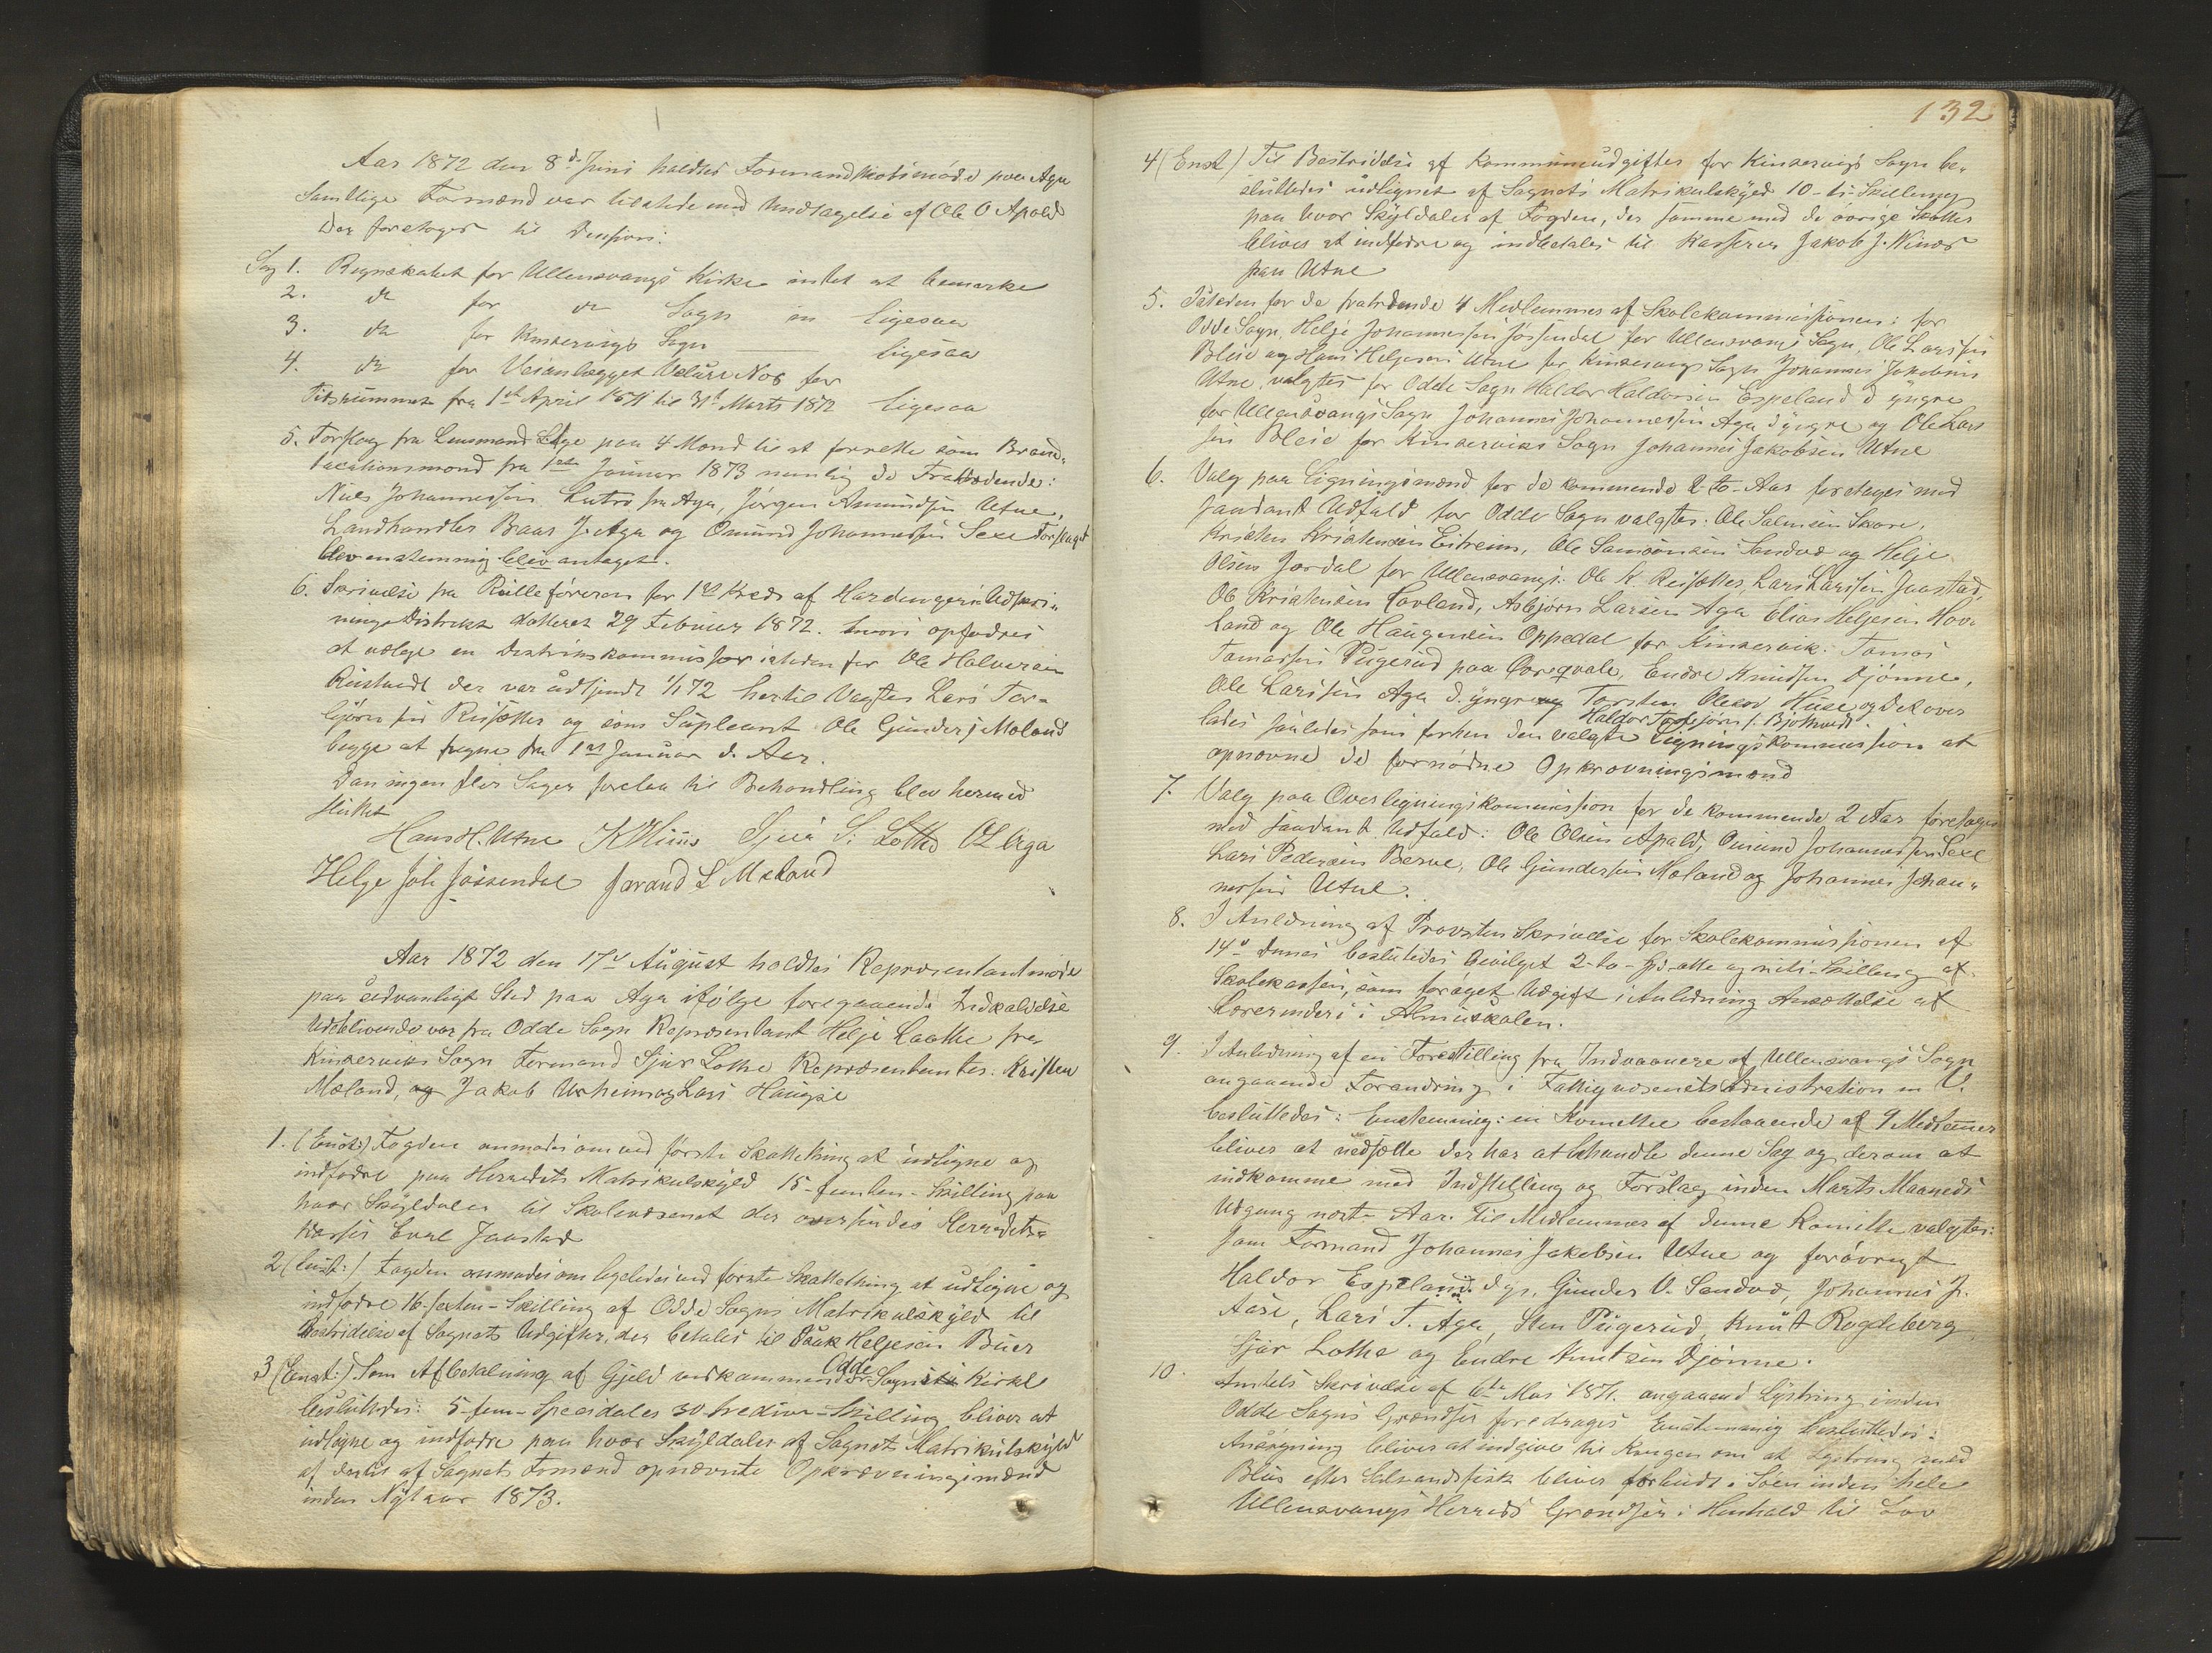 Aar 1872 den 8d Juni holdtes Formandskabsmöde paa Aga
Samtlige Formænd var tilstede med Undtagelse af Ole O Apold
Der foretoges til Decision:
Sag 1. Regnskabet for Ullensvangs Kirke intet at bemærke
2. do for do Sogn ligesaa
3. do for Kinserviks Sogn ligesaa
4. do for Veianlægget Velure Nos for
Tidsrummet fra 1st April 1871 til 31t Marts 1872 ligesaa
5. Forslag fra Lensmand paa 4 Mænd til at forrette som Brand-
taxationsmænd fra 1ste Januar 1873 nemlig de Fratrædende:
Niels Johannessen Lutro fra Aga, Jørgen Amundsen Utne,
Landhandler Baar J. Aga og Omund Johannessen Sexe Forslaget
blev enstemmig antaget.
6. Skrivelse fra Rulleföreren for 1ste Kreds af Hardangers Udskri-
ningsDistrikt dateret 29 Februer 1872. hvori opfodres
at vælge en Distriktskommissær isteden for Ole Halvorsen
der var udtjendt 1/1 72 hertil Valgtes Lars Tor-
bjørnsen Reisæter og som Supleant Ole Gunders. Moland
begge at regne fra 1st Januar d. Aar.
Da ingen fler Sager forelaa til Behandling blev hermed
sluttet
Hans H. Utne Sjur S: Lothe O L Aga
Helge Joh Jøssendal Jorand L Mæland
Aar 1872 den 17d August holdtes Repræsentantmöde
paa sedvanligt Sted paa Aga ifölge foregaaende Indkaldelse
Udeblivende var fra Odde Sogn Repræsentant Helje Laathe fra
Kinserviks Sogn Formand Sjur Lothe Repræsentanter: Kristen
Mæland, og Jakob Urheim og Lars Haugse
1. (Enst:) Fogden anmodes om ved förste Skattething at udligne og
indfodre paa Herredets Matrikulskyld 15-femten-Skilling paa
hvær Skyldaler til Skolevæsenet der oversendes Herredets-
kasser Eval Jaastad
2 (Enst:) Fogden anmodes om ligeledes ved förste Skattething at udligne og
indfodre 16-sexten-Skilling af Odde Sogns Matrikulskyld til
Bestridelse af Sognets Udgifter, der betales til Isaak Heljesen Buer
3 (Enst:). Som Afbetaling af Gjeld vedkommende Odde Sogns Kirke
besluttedes: 5-fem-Speesdaler 30-tredive-Skilling bliver at
udligne og indfodre paa hvær Skyldaler af Sognets Matrikulskyld
af dertil af Sognets Formænd opnævnte Opkrævningsmænd
inden Nÿtaar 1873.
132
4 (Enst) Til Bestridelse af Kommuneudgifter for Kinserviks Sogn be-
sluttedes udlignet af Sognets Matrikulskyld 10-ti-Skilling
paa hver Skyldaler af Fogden, der samme med de övrige Skatter
bliver at indfodre og indbetales til Kasserer Jakob J. Winæs
paa Utne
5. Isteden for de fratrædende 4 Medlemmer af Skolekommissionen: for
Odde Sogn, Helje Johannessen Jösendal for Ullensvangs Sogn, Ole Larssen
Bleie og Hans Heljesen Utne for Kinserviks Sogn Johannes Jakobsen
Utne, valgtes for Odde Sogn Haldor Haldorsen Espeland d yngre
for Ullensvangs Sogn Johannes Johannessen Aga d yngre og Ole Lars
sen Bleie for Kinserviks Sogn Johannes Jakobsen Utne
6. Valg paa Ligningsmænd for de kommende 2-to-Aar foretages med
saadant Udfald for Odde Sogn valgtes: Ole Salmsen Skare,
Kristen Kristensen Eitreim, Ole Samsonsen Sandvæ og Helje
Olsen Jordal for Ullensvangs: Ole K. Reisæter, Lars Larssen Jaastad,
Ole Kristensen Lovland, Asbjørn Larsen Aga Elias Heljesen Hov-
land og Ole Haugensen Oppedal for Kinservik: Tomas
Tomassen Pügerud paa Qværqvale, Endre Knudsen Djönne,
Ole Larssen Aga d. yngre og Torsten Olesen Huse og det over
Haldor Torbjörns. Bjotveidt.
lades saaledes som forhen den valgte Ligningskommission at
opnævne de fornødne Opkrævningsmænd
7. Valg paa Overligningskommission for de kommende 2 Aar foretages
med saadant Udfald: Ole Olsen Apald, Omund Johannessen Sexe
Lars Pedersen Berve, Ole Gundersen Moland og Johannes Johan-
nessen Utne.
8. I Anledning af Provsten Skrivelse for Skolekommissionen af
14d dennes besluttedes bevilget 2-to-Spd. otte og niti-Skilling af
Skolekassen, som foröget Udgift i Anledning Ansættelse af
Lærerinder i Almüskolen.
9. I Anledning af en Forestilling fra Indvaanere af Ullensvangs Sogn
angaaende Forandring i Fattigvæsenets Administration m V.
besluttedes: Enstemmig: en Komittee bestaaende af 9 Medlemer
bliver at nedsætte der har at behandle denne Sag og derom at
indkomme med Indstilling og Forslag inden Marts Maaneds
Udgang næste Aar. Til Medlemmer af denne Komitte valgtes:
som Formand Johannes Jakobsen Utne og forövrigt
Haldor Espeland d. yr, Gunder O. Sandvæ, Johannes J.
Aase, Lars T. Aga, Sten Pügerud, Knut Rogdeberg
Sjur Lothe og Endre Knutsen Djönne.
10. Amtets Skrivelse af 6te Mai 1871. angaaend Lystring inden
Odde Sogns Grændser foredrages Enstemmig besluttedes:
Ansögning bliver at indgive til Kongen om at Lystring med
Blus efter Saltvandsfisk bliver forbudt i Söen inden hele
Ullensvangs Herreds Grændser i Henhold til Lov